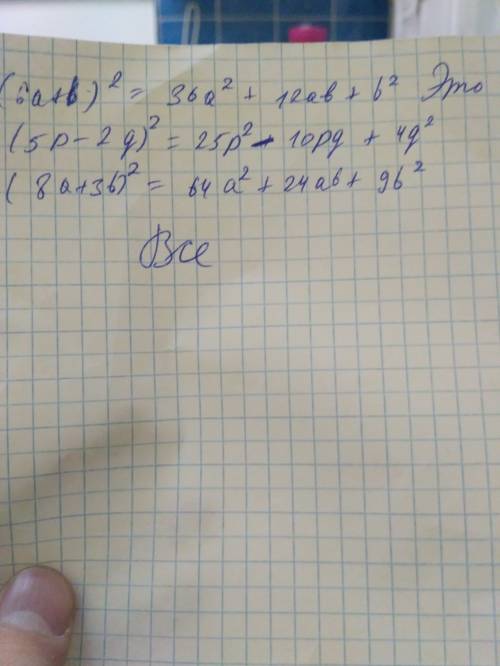 (6a+b)² = 36a² + 12ab + b² Это
(5p - 2g)² = 25p² - 10pg + 4g²
(8a+3b)² = 64a² + 24ab + 9b²
Все